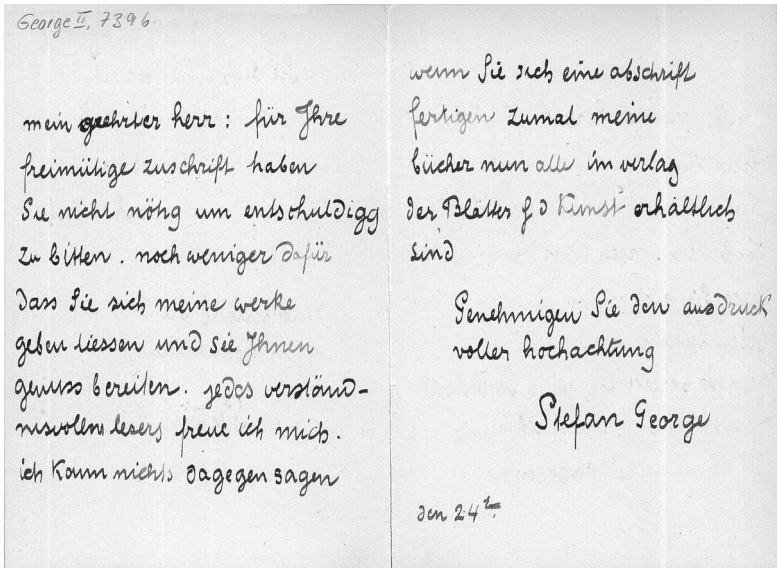 George II, 7396
mein geehrter herr: für Ihre
freimütige zuschrift haben
Sie nicht nötig um entschuldigg
zu bitten. noch weniger dafür
dass Sie sich meine werke
geben liessen und sie Ihnen
genuss bereiten. jedes verständ-
nisvollen lesers freue ich mich.
ich kann nichts dagegen sagen
wenn Sie sich eine abschrift
fertigen zumal meine
bücher nun alle im verlag
der Blätter f d Kunst erhältlich
sind
Genehmigen Sie den ausdruck
voller hochachtung
Stefan George
den 24t.